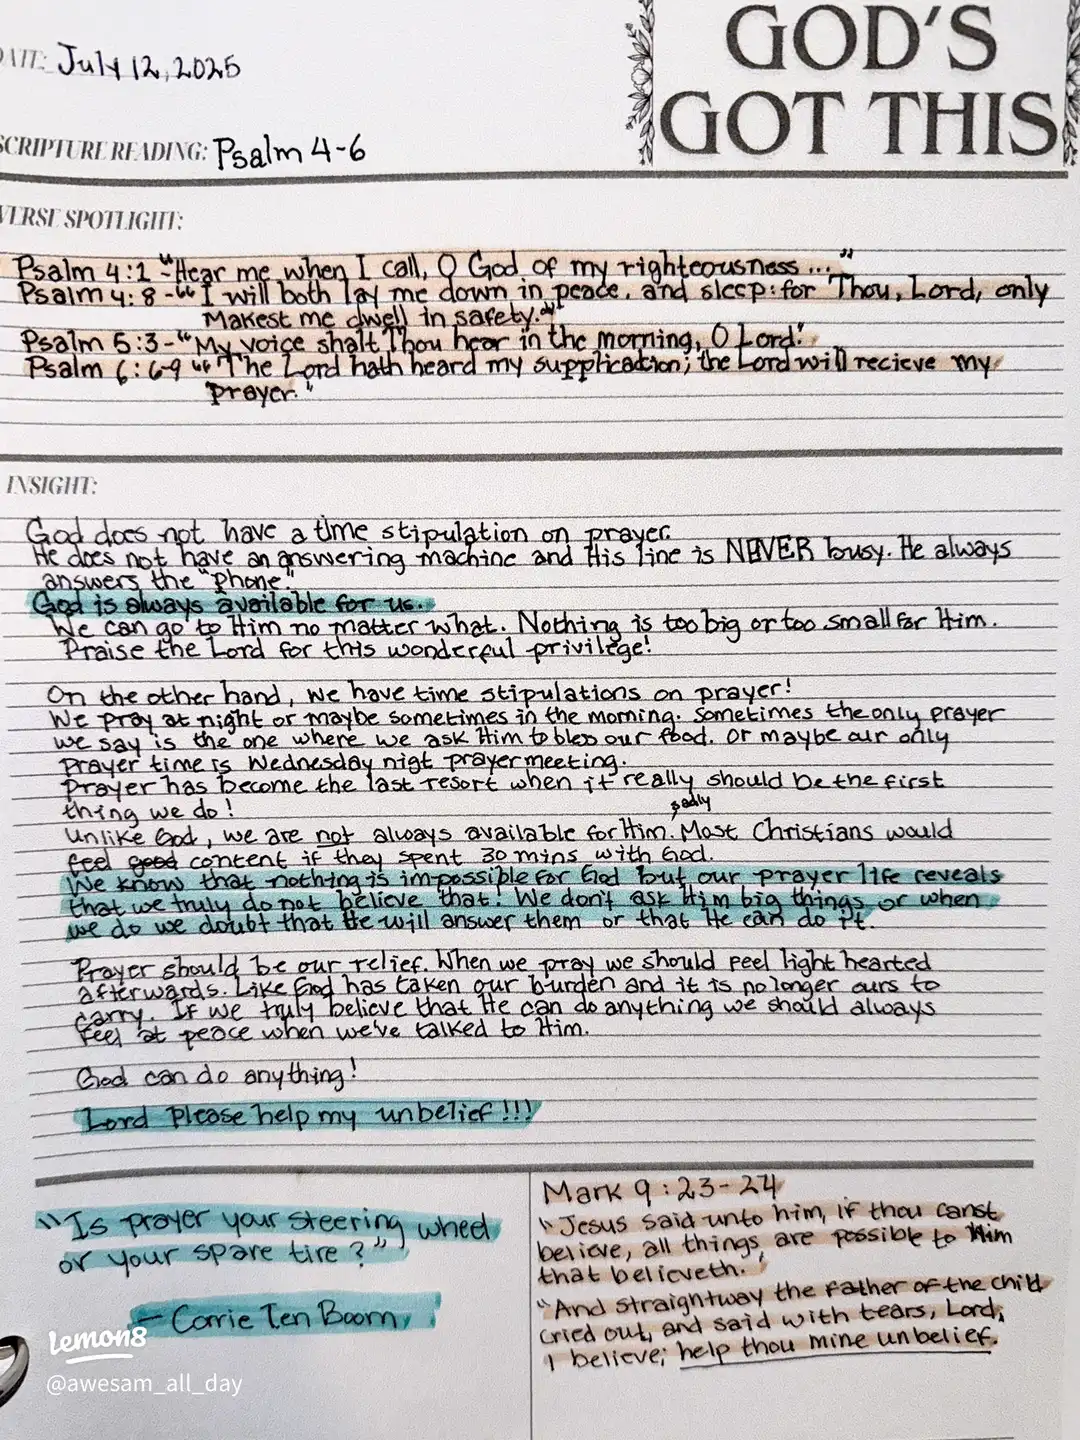 DATE: July 12, 2025
GOD'S
GOT THIS
SCRIPTURE READING: Psalm 4-6
VERSE SPOTLIGHT:
Psalm 4:1 - "Hear me when I call, O God of my righteousness ..."
Psalm 4:8 - "I will both lay me down in peace, and sleep: for Thou, Lord, only
makest me dwell in safety."
Psalm 5:3 - "My voice shalt Thou hear in the morning, O Lord."
Psalm 6:6-9 "The Lord hath heard my supplication; the Lord will recieve my
prayer."
INSIGHT:
God does not have a time stipulation on prayer.
He does not have an answering machine and His line is NEVER busy. He always
answers the "phone."
God is always available for us.
We can go to Him no matter what. Nothing is too big or too small for Him.
Praise the Lord for this wonderful privilege!
On the other hand, we have time stipulations on prayer!
We pray at night or maybe sometimes in the morning. Sometimes the only prayer
we say is the one where we ask Him to bless our food. Or maybe our only
prayer time is Wednesday nigt prayer meeting.
Prayer has become the last resort when it really should be the first
thing we do!
Unlike God, we are not always available for Him. sadly Most Christians would
feel good content if they spent 30 mins with God.
We know that nothing is impossible for God but our prayer life reveals
that we truly do not believe that. We don't ask Him big things or when
we do we doubt that He will answer them or that He can do it.
Prayer should be our relief. When we pray we should feel light hearted
afterwards. Like God has taken our burden and it is no longer ours to
carry. If we truly believe that He can do anything we should always
feel at peace when we've talked to Him.
God can do anything!
Lord Please help my unbelief!!!
"Is prayer your steering wheel
or your spare tire?"
- Corrie Ten Boom
Mark 9:23-24
"Jesus said unto him, if thou canst
believe, all things are possible to Him
that believeth."
"And straightway the father of the child
cried out, and said with tears, Lord,
I believe; help thou mine unbelief.
lemon8
@awesam_all_day